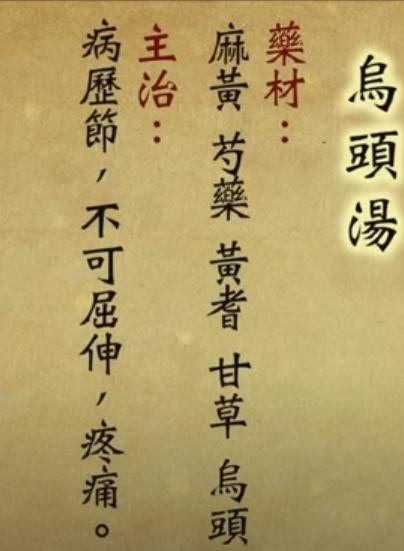 烏頭湯
藥材：
麻黃 芍藥 黃耆 甘草 烏頭
主治：
病歷節，不可屈伸，疼痛。